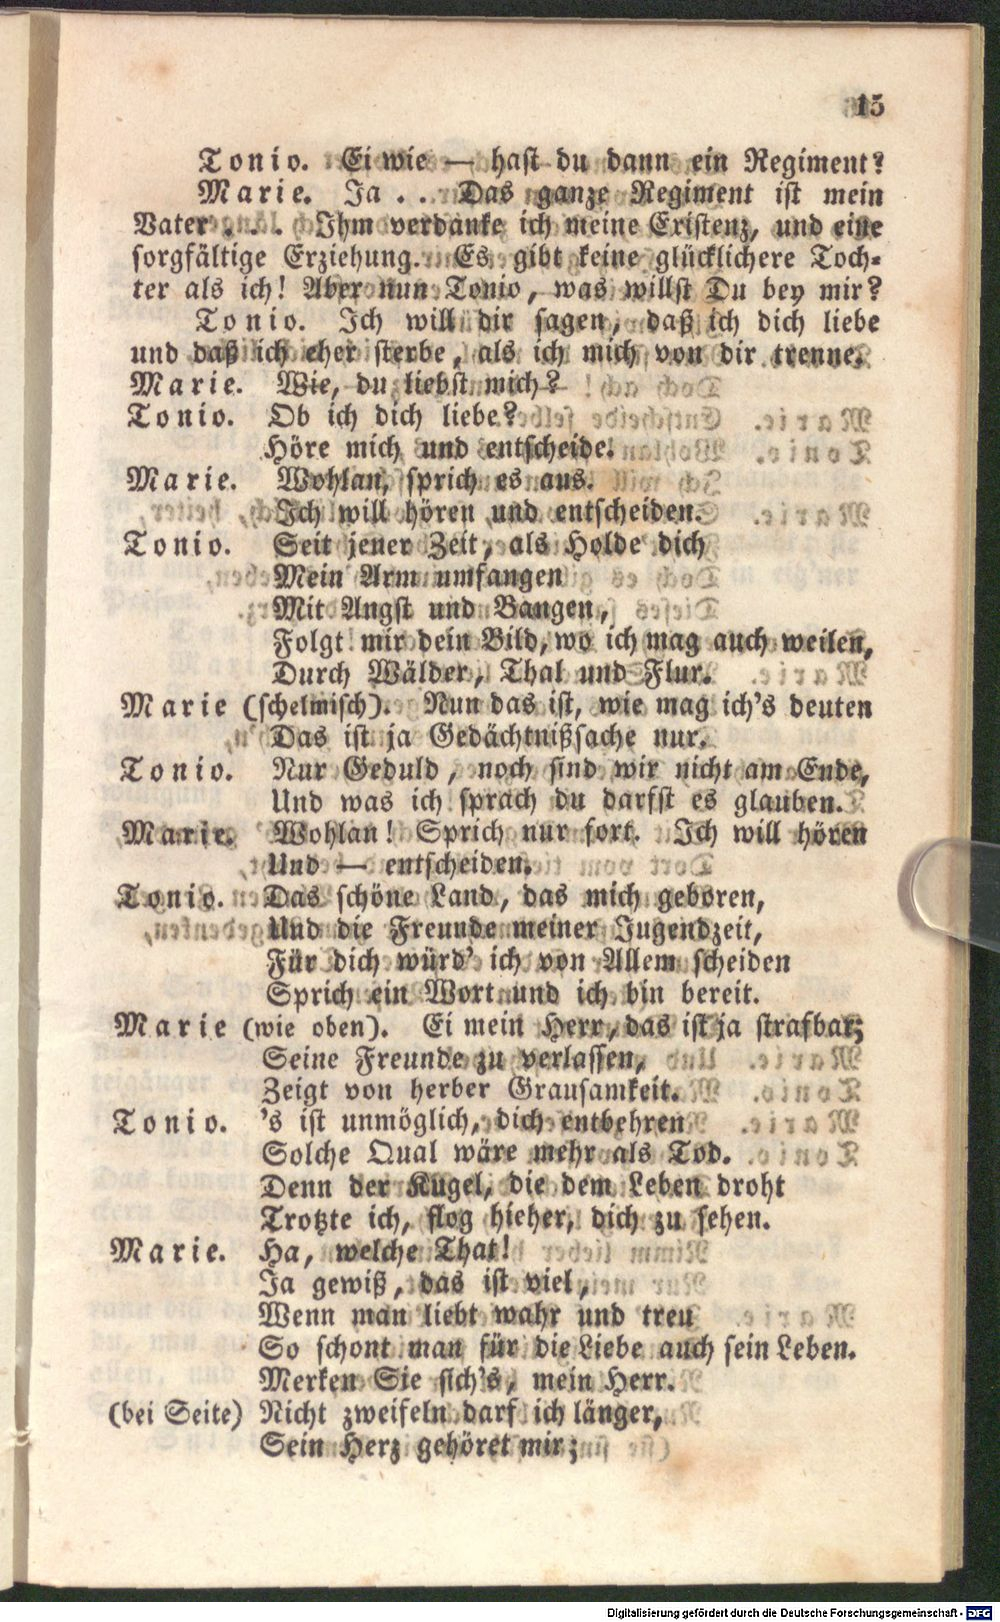 15
Tonio. Ei wie — hast du dann ein Regiment?
Marie. Ja . . . Das ganze Regiment ist mein
Vater . . . Ihm verdanke ich meine Existenz, und eine
sorgfältige Erziehung. Es gibt keine glücklichere Toch-
ter als ich! Aber nun Tonio, was willst Du bey mir?
Tonio. Ich will dir sagen, daß ich dich liebe
und daß ich eher sterbe, als ich mich von dir trenne.
Marie. Wie, du liebst mich?
Tonio. Ob ich dich liebe?
Höre mich und entscheide.
Marie. Wohlan, sprich es aus.
Ich will hören und entscheiden.
Tonio. Seit jener Zeit, als Holde dich
Mein Arm umfangen
Mit Angst und Bangen,
Folgt mir dein Bild, wo ich mag auch weilen,
Durch Wälder, Thal und Flur.
Marie (schelmisch). Nun das ist, wie mag ich's deuten
Das ist ja Gedächtnißsache nur.
Tonio. Nur Geduld, noch sind wir nicht am Ende,
Und was ich sprach du darfst es glauben.
Marie. Wohlan! Sprich nur fort. Ich will hören
Und — entscheiden.
Tonio. Das schöne Land, das mich geboren,
Und die Freunde meiner Jugendzeit,
Für dich würd' ich von Allem scheiden
Sprich ein Wort und ich bin bereit.
Marie (wie oben). Ei mein Herr, das ist ja strafbar;
Seine Freunde zu verlassen,
Zeigt von herber Grausamkeit.
Tonio. 's ist unmöglich, dich entbehren
Solche Qual wäre mehr als Tod.
Denn der Kugel, die dem Leben droht
Trotzte ich, flog hieher, dich zu sehen.
Marie. Ha, welche That!
Ja gewiß, das ist viel,
Wenn man liebt wahr und treu
So schont man für die Liebe auch sein Leben.
Merken Sie sich's, mein Herr.
(bei Seite) Nicht zweifeln darf ich länger,
Sein Herz gehöret mir;
Digitalisierung gefördert durch die Deutsche Forschungsgemeinschaft - DFG